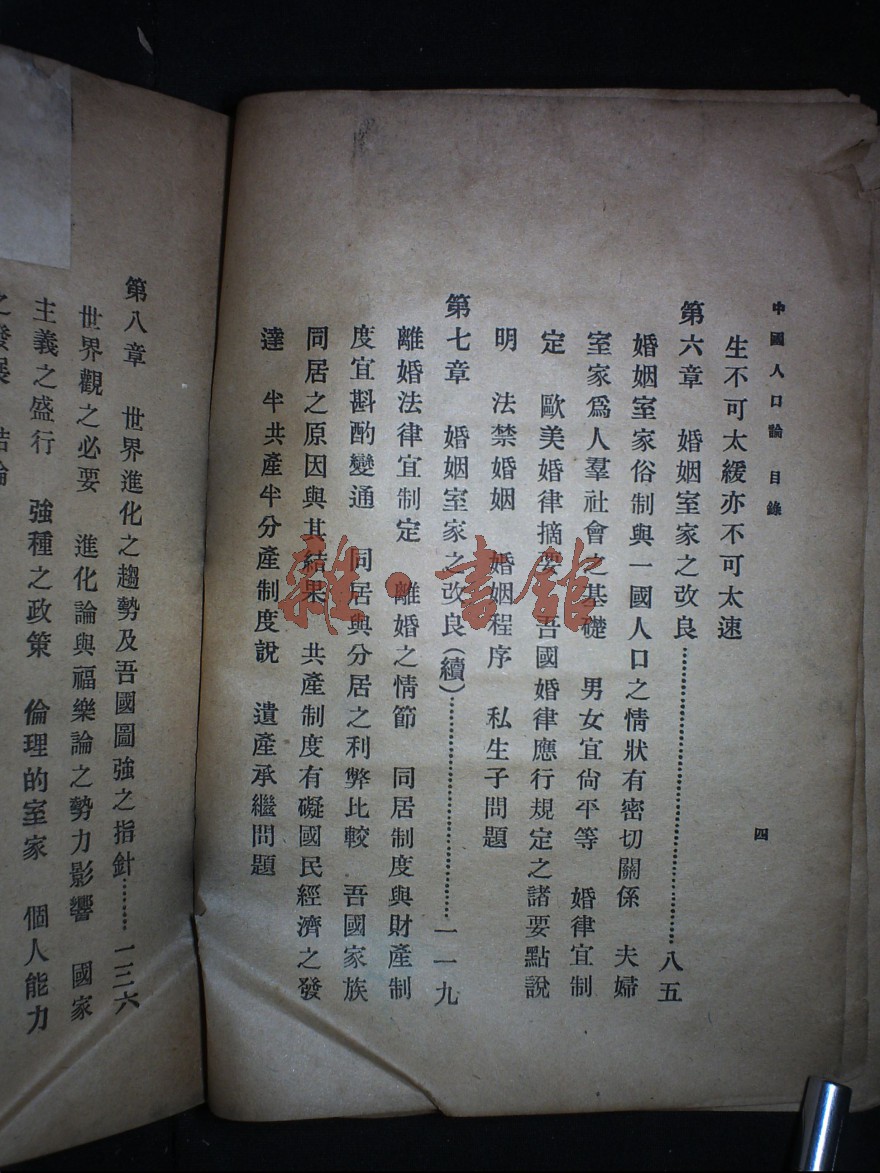 中國人口論 目錄
四
生不可太緩亦不可太速
第六章 婚姻室家之改良……………………八五
婚姻室家俗制與一國人口之情狀有密切關係 夫婦
室家爲人羣社會之基礎 男女宜尙平等 婚律宜制
定 歐美婚律摘要 吾國婚律應行規定之諸要點說
明 法禁婚姻 婚姻程序 私生子問題
第七章 婚姻室家之改良(續)……………………一一九
離婚法律宜制定 離婚之情節 同居制度與財產制
度宜斟酌變通 同居與分居之利弊比較 吾國家族
同居之原因與其結果 共產制度有礙國民經濟之發
達 半共產半分產制度說 遺產承繼問題
第八章 世界進化之趨勢及吾國圖強之指針………一三六
世界觀之必要 進化論與福樂論之勢力影響 國家
主義之盛行 強種之政策 倫理的室家 個人能力
之發展 結論
雜·書館